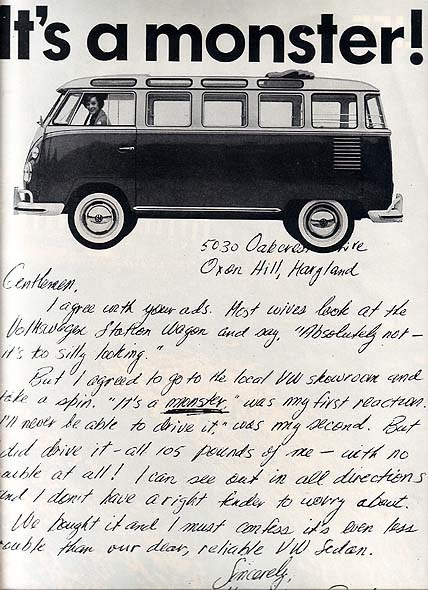 It's a monster!
5030 Oakcrest Drive
Oxon Hill, Maryland
Gentlemen,
I agree with your ads. Most wives look at the
Volkswagen Station Wagon and say, "Absolutely not –
it's too silly looking."
But I agreed to go to the local VW showroom and
take a spin. "It's a monster" was my first reaction.
"I'll never be able to drive it," was my second. But
did drive it – all 105 pounds of me – with no
trouble at all! I can see out in all directions
and I don't have a right fender to worry about.
We bought it and I must confess it's even less
trouble than our dear, reliable VW Sedan.
Sincerely,